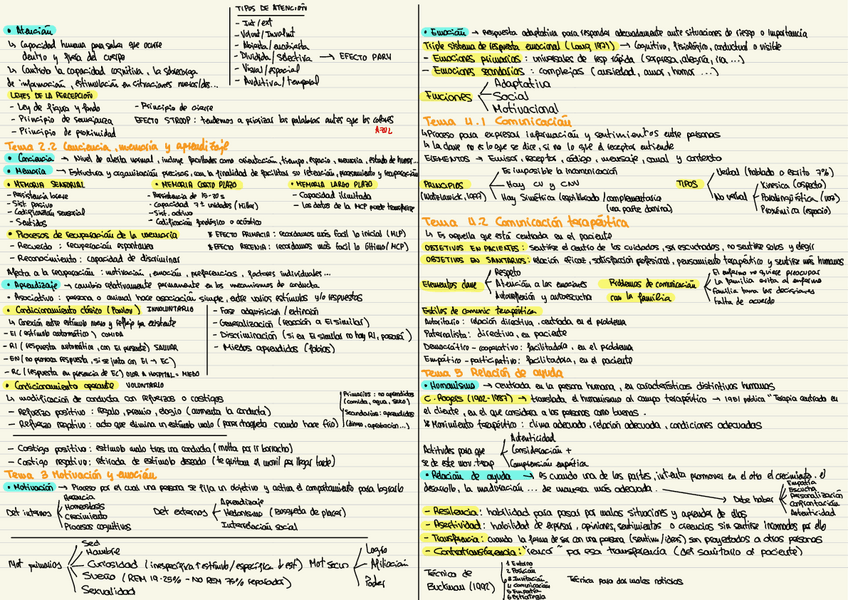 • Atención
↳ Capacidad humana para saber que ocurre
dentro y fuera del cuerpo
↳ Controla la capacidad cognitiva, la sobrecarga
de información, estimulación en situaciones
TIPOS DE ATENCIÓN
- Int / ext
- Volunt / Involunt
- Abierta / encubierta
- Dividida / selectiva → EFECTO PARY
- Visual / espacial
- Auditiva / temporal
LEYES DE LA PERCEPCIÓN
- Ley de figura y fondo
- Principio de semejanza
- Principio de proximidad
- Principio de cierre
EFECTO STROOP: tendemos a priorizar las palabras antes que los colores
AZUL
Tema 2.2 Conciencia, memoria y aprendizaje
• Conciencia → Nivel de alerta normal, incluye facultades como orientación, tiempo, espacio, memoria, estado de humor...
• Memoria → Estructura y organización precisas, con la finalidad de facilitar su retención, procesamiento y recuperación
• MEMORIA SENSORIAL
- Persistencia breve
- Sist. pasivo
- Codificación sensorial
- Sentidos
• MEMORIA CORTO PLAZO
- Persistencia de 18-20 s
- Capacidad 7 ± unidades (Miller)
- Sist. activo
- Codificación fonológica o acústica
• MEMORIA LARGO PLAZO
- Capacidad ilimitada
- Los datos de la MCP puede transferirse
• Procesos de recuperación de la memoria
- Recuerdo: recuperación espontánea
- Reconocimiento: capacidad de discriminar
* EFECTO PRIMACIA: recordamos más fácil lo inicial (MLP)
* EFECTO RECENCIA: recordamos más fácil lo último (MCP)
Afecta a la recuperación: motivación, emoción, preferencias, factores individuales...
• Aprendizaje → cambio relativamente permanente en los mecanismos de conducta
• Asociativo: persona o animal hace asociación simple, entre varios estímulos y/o respuestas
• Condicionamiento clásico (Pavlov) INVOLUNTARIO
↳ Conexión entre estímulo nuevo y reflejo ya existente
- EI (estímulo automático) COMIDA
- RI (respuesta automática, con EI presente) SALIVAR
- EN (no provoca respuesta, si se junta con EI → EC)
- RC (respuesta en presencia de EC) OLOR A HOSPITAL = MIEDO
- Fase adquisición / extinción
- Generalización (reacción a EI similar)
- Discriminación (si en EI similar no hay RI, pasará)
- Miedos aprendidos (fobias)
• Condicionamiento operante VOLUNTARIO
↳ modificacion de conducta con refuerzos o castigos
- Refuerzo positivo: regalo, premio, elogio (aumenta la conducta)
- Refuerzo negativo: acto que elimina un estímulo malo (pongo chaqueta cuando hace frío)
Primarios: no aprendidos
(comida, agua, sexo)
Secundarios: aprendidos
(dinero, aprobación...)
- Castigo positivo: estímulo malo tras una conducta (multa por ir borracho)
- Castigo negativo: retirada de estímulo deseado (te quitan el móvil por llegar tarde)
Tema 3 Motivación y emoción
• Motivación → Proceso por el cual una persona se fija un objetivo y activa el comportamiento para lograrlo
Det internos
Herencia
Homeostasis
Crecimiento
Procesos cognitivos
Det externos
Aprendizaje
Hedonismo (búsqueda de placer)
Interrelación social
Mot primarios
Sed
Hambre
Curiosidad (inespecífica ↑ estímulo / específica ↓ est)
Sueño (REM 19-25% - NO REM 75% reparador)
Sexualidad
Mot socia
Logro
Afiliación
Poder
• Emoción → respuesta adaptativa para responder adecuadamente ante situaciones de riesgo o importancia
Triple sistema de respuesta emocional (Lang, 1971) → Cognitivo, fisiológico, conductual o visible
- Emociones primarias: universales de resp rápida (sorpresa, alegría, ira ...)
- Emociones secundarias: complejas (ansiedad, amor, humor ...)
Funciones
Adaptativa
Social
Motivacional
Tema 4.1 Comunicación
↳ Proceso para expresar información y sentimientos entre personas
↳ la clave no es lo que se dice, si no lo que el receptor entiende
ELEMENTOS → Emisor, receptor, código, mensaje, canal y contexto
PRINCIPIOS
(Watzlawick, 1997)
Es imposible la incomunicación
Hay CV y CNV
Hay Simétrica (equilibrada) / complementaria
(una parte domina)
TIPOS
Verbal (hablado o escrito 7%)
No verbal
Kinésica (espacio)
Paralingüística (voz)
Proxémica (espacio)
Tema 4.2 Comunicación terapéutica
↳ Es aquella que está centrada en el paciente
OBJETIVOS EN PACIENTES: sentirse el centro de los cuidados, ser escuchados, no sentirse solos y elegir
OBJETIVOS EN SANITARIOS: relación eficaz, satisfacción profesional, pensamiento terapéutico y sentirse más humanos
Elementos clave
Respeto
Atención a las emociones
Autoreflexión y autoescucha
Problemas de comunicación
con la familia
El enfermo no quiere preocupar
La familia evita al enfermo
Familia toma las decisiones
Falta de acuerdo
Estilos de comunic. terapéutica
Autoritario: relación directiva, centrada en el problema
Paternalista: directiva, en paciente
Democrático-cooperativo: facilitadora, en el problema
Empático-participativo: facilitadora, en el paciente
Tema 5 Relación de ayuda
• Humanismo → Centrada en la persona humana, en características distintivas humanas
C. Rogers (1902-1987) → traslada el humanismo al campo terapéutico → 1951 publica "Terapia centrada en
el cliente", en el que considera a las personas como buenas.
* Movimiento terapéutico: clima adecuado, relación adecuada, condiciones adecuadas
Actitudes para que
se de este mov. terap
Autenticidad
Consideración +
Comprensión empática
• Relación de ayuda → Es cuando una de las partes, intenta promover en el otro el crecimiento, el
desarrollo, la maduración ... de manera más adecuada.
Debe haber
Empatía
Escucha
Personalización
Confrontación
Autenticidad
- Resiliencia: habilidad para pasar por malas situaciones y aprender de ellas
- Asertividad: habilidad de expresar, opiniones, sentimientos o creencias sin sentirse incómodos por ello
- Transferencia: cuando la forma de ser con una persona (sentim / ideas) son proyectados a otras personas
- Contratransferencia: por esa transferencia (del sanitario al paciente)
Técnica de
Buckman (1992)
1 Entorno
2 Percepción
3 Invitación
4 Comunicación
5 Empatía
6 Estrategia
Técnica para dar malas noticias